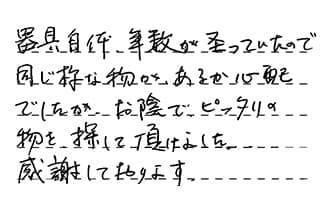 器具自体、年数が至っていたので
同じ様な物が、あるか心配
でしたが、お陰で、ピッタリの
物を、探して頂けました。
感謝しております。